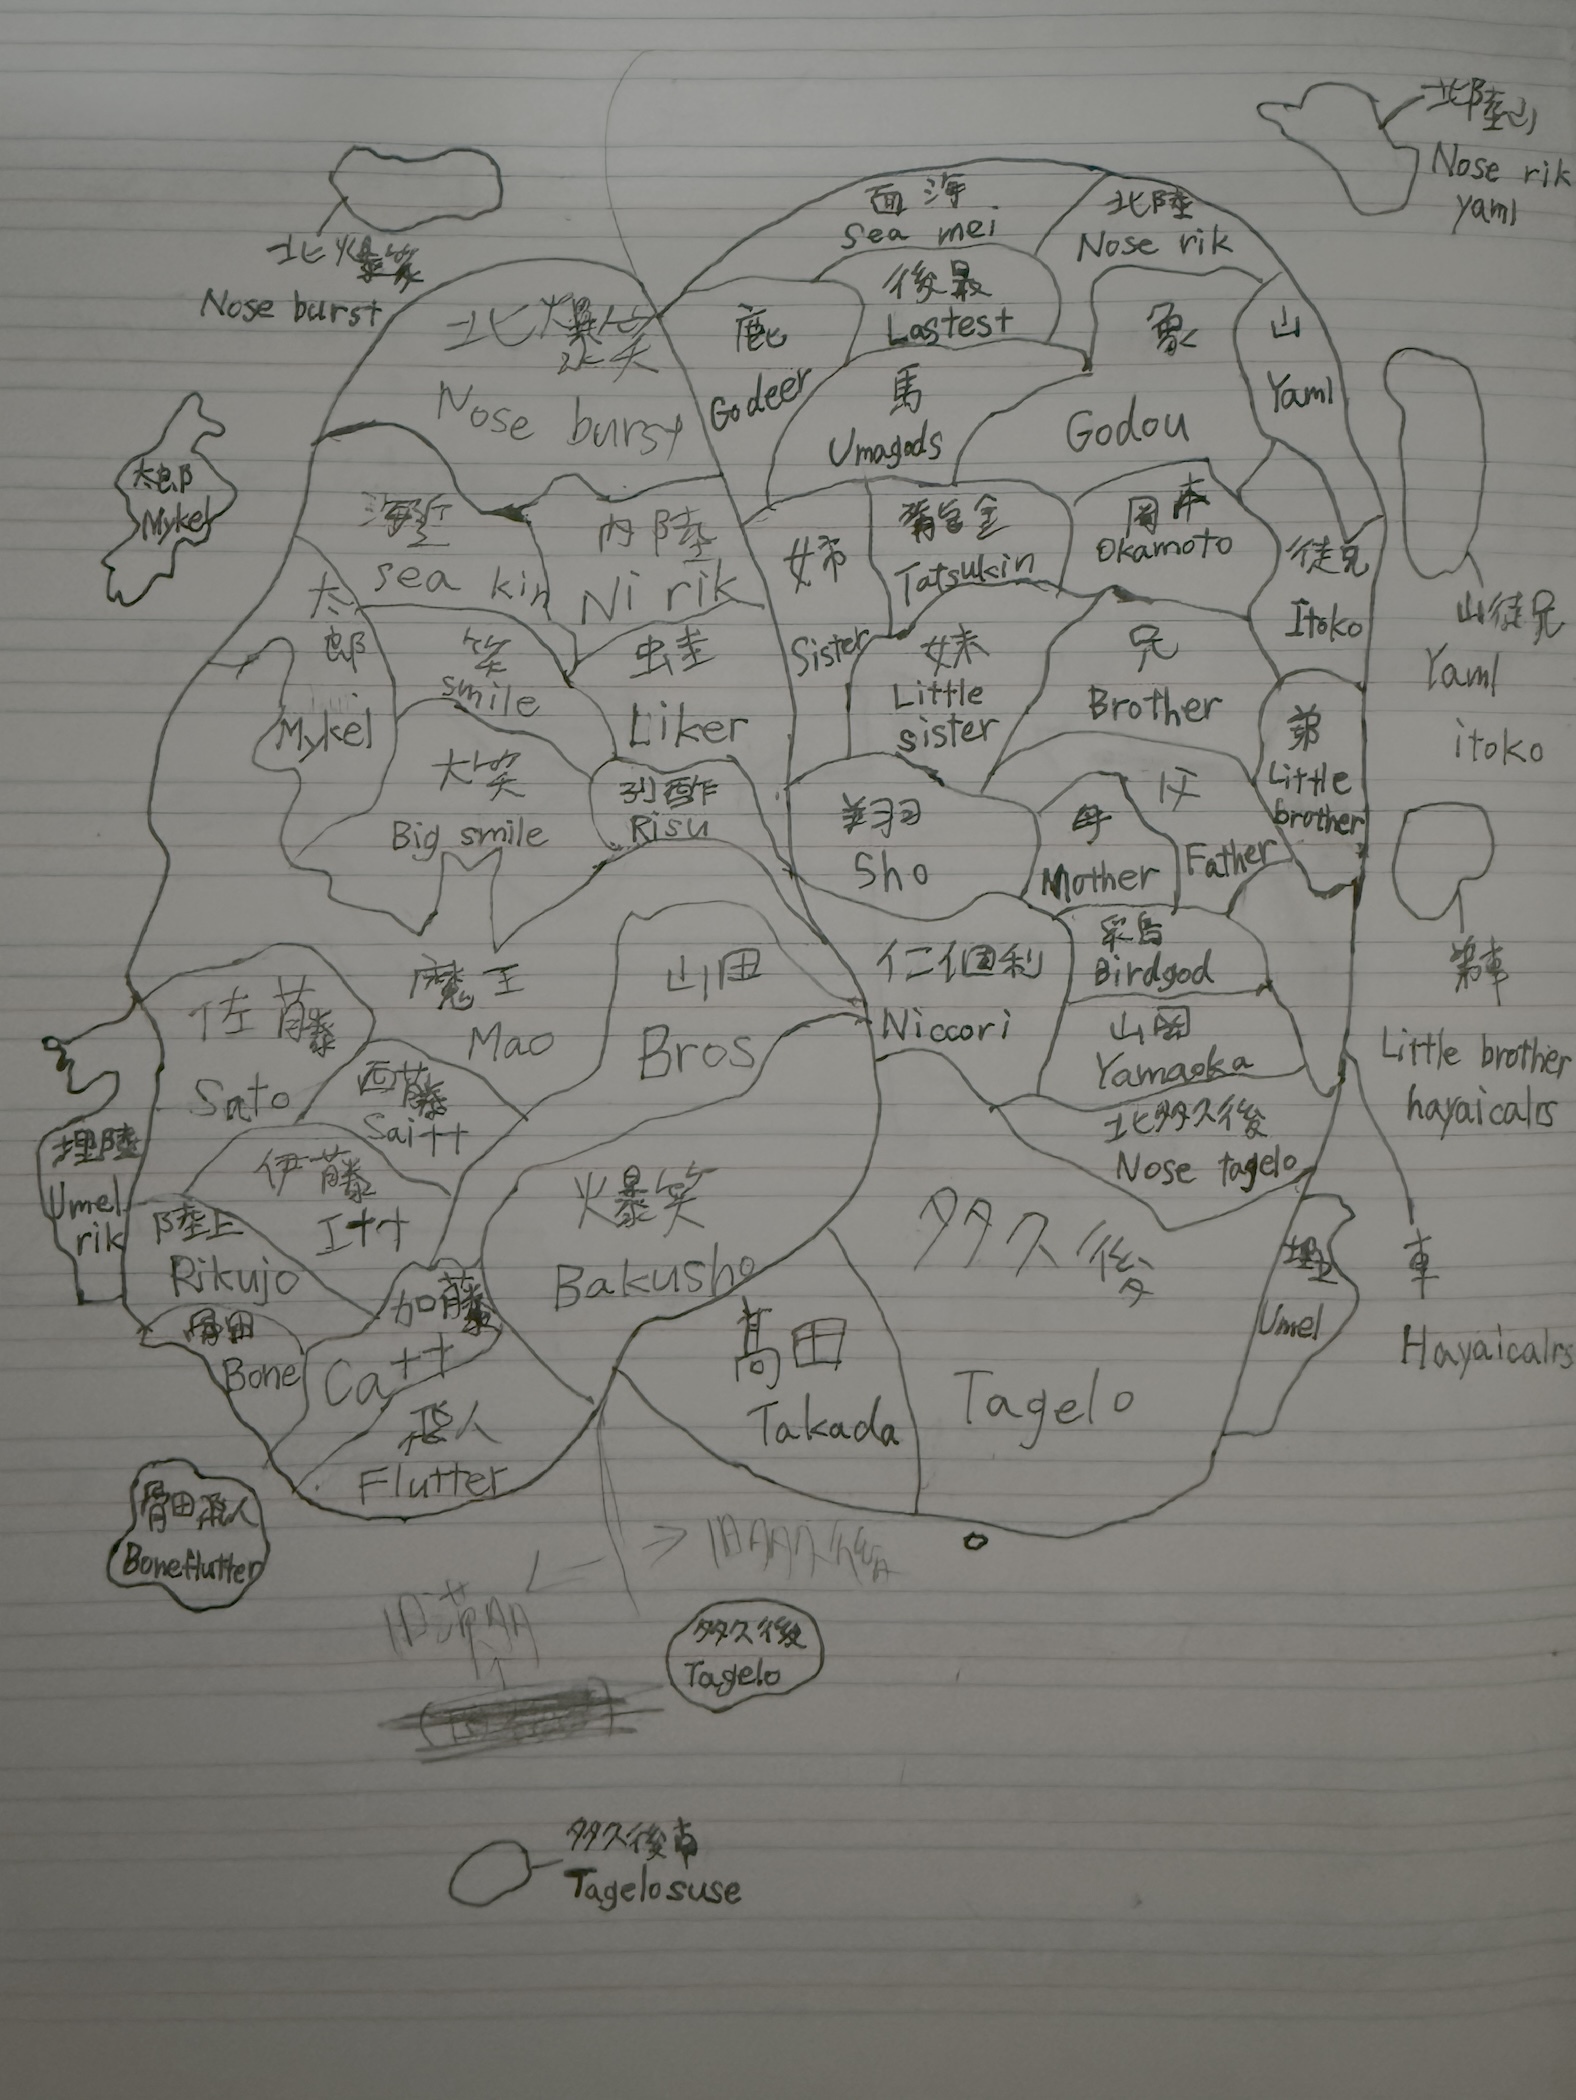 北陸山
Nose rik
yaml
面海
Sea mei
北陸
Nose rik
北爆笑
Nose burst
北爆笑
Nose burst
鹿
Godeer
後最
Lastest
象
Godou
山
Yaml
馬
Umagods
太郎
Mykel
海近
sea kin
内陸
Ni rik
姉
Sister
Tatsukin
岡本
Okamoto
従兄
Itoko
山従兄
Yaml
itoko
太
郎
Mykel
笑
smile
虫圭
Liker
妹
Little
sister
兄
Brother
弟
Little
brother
大笑
Big smile
Risu
翔
Sho
母
Mother
Father
弟車
Little brother
hayaicalrs
魔王
Mao
山田
Bros
仁個利
Niccori
彩鳥
Birdgod
山岡
Yamaoka
佐藤
Sato
西藤
Sai++
北多久後
Nose tagelo
埋陸
Umel
rik
伊藤
I++
陸上
Rikujo
爆笑
Bakusho
多久後
Tagelo
埋立
Umel
車
Hayaicalrs
骨田
Bone
加藤
Ca++
髙田
Takada
飛人
Flutter
骨田飛人
Boneflutter
多久後
Tagelo
多久後南
Tagelosuse